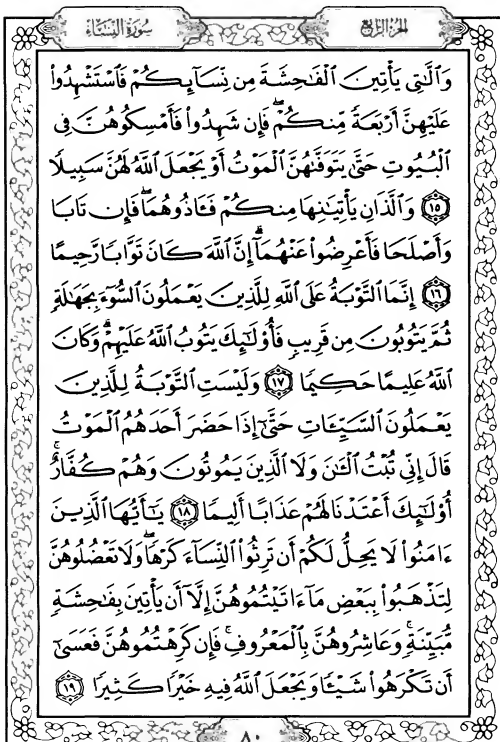 سُورَةُ النِّسَاءِ الجزء الرابع
وَالَّتِي يَأْتِينَ الْفَاحِشَةَ مِن نِّسَآئِكُمْ فَاسْتَشْهِدُوا
عَلَيْهِنَّ أَرْبَعَةً مِّنكُمْ ۖ فَإِن شَهِدُوا فَأَمْسِكُوهُنَّ فِي
الْبُيُوتِ حَتَّىٰ يَتَوَفَّاهُنَّ الْمَوْتُ أَوْ يَجْعَلَ اللَّهُ لَهُنَّ سَبِيلًا
١٥ وَالَّذَانِ يَأْتِيَانِهَا مِنكُمْ فَـَٔاذُوهُمَا ۖ فَإِن تَابَا
وَأَصْلَحَا فَأَعْرِضُوا عَنْهُمَآ ۗ إِنَّ اللَّهَ كَانَ تَوَّابًا رَّحِيمًا
١٦ إِنَّمَا التَّوْبَةُ عَلَى اللَّهِ لِلَّذِينَ يَعْمَلُونَ السُّوٓءَ بِجَهَٰلَةٍ
ثُمَّ يَتُوبُونَ مِن قَرِيبٍ فَأُو۟لَٰٓئِكَ يَتُوبُ اللَّهُ عَلَيْهِمْ ۗ وَكَانَ
اللَّهُ عَلِيمًا حَكِيمًا ١٧ وَلَيْسَتِ التَّوْبَةُ لِلَّذِينَ
يَعْمَلُونَ السَّيِّـَٔاتِ حَتَّىٰٓ إِذَا حَضَرَ أَحَدَهُمُ الْمَوْتُ
قَالَ إِنِّي تُبْتُ الْـَٰٔنَ وَلَا الَّذِينَ يَمُوتُونَ وَهُمْ كُفَّارٌ ۚ
أُو۟لَٰٓئِكَ أَعْتَدْنَا لَهُمْ عَذَابًا أَلِيمًا ١٨ يَٰٓأَيُّهَا الَّذِينَ
ءَامَنُوا لَا يَحِلُّ لَكُمْ أَن تَرِثُوا النِّسَآءَ كَرْهًا ۖ وَلَا تَعْضُلُوهُنَّ
لِتَذْهَبُوا بِبَعْضِ مَآ ءَاتَيْتُمُوهُنَّ إِلَّآ أَن يَأْتِينَ بِفَٰحِشَةٍ
مُّبَيِّنَةٍ ۚ وَعَاشِرُوهُنَّ بِالْمَعْرُوفِ ۚ فَإِن كَرِهْتُمُوهُنَّ فَعَسَىٰٓ
أَن تَكْرَهُوا شَيْـًٔا وَيَجْعَلَ اللَّهُ فِيهِ خَيْرًا كَثِيرًا ١٩
٨٠